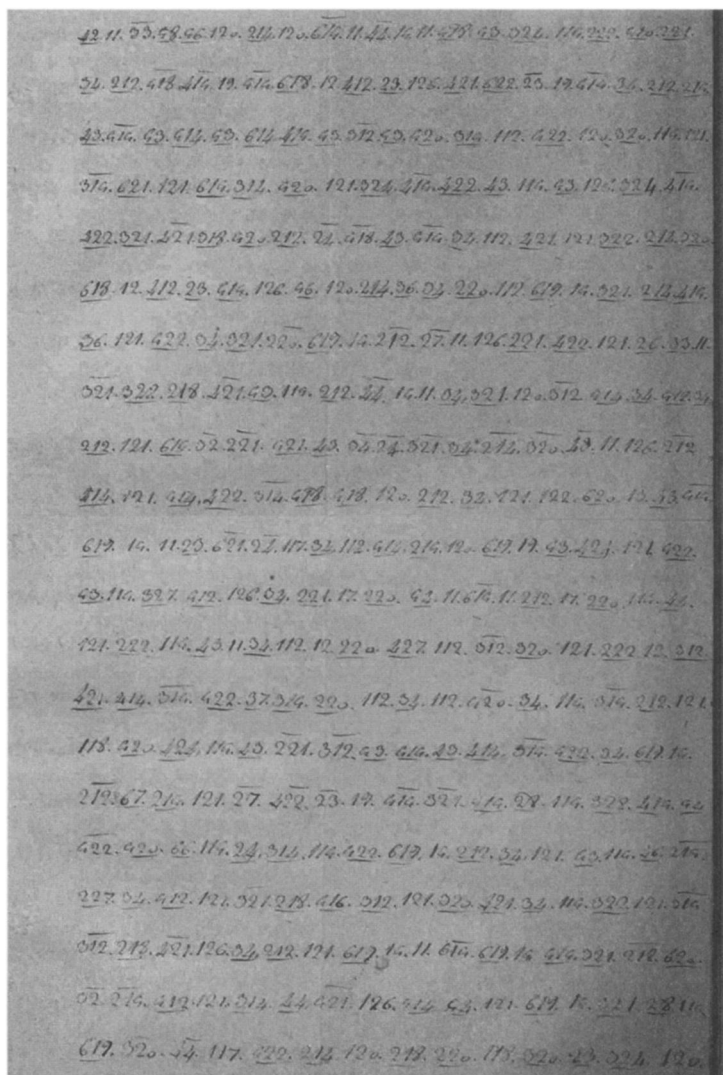 42. 11. 33. 98. 96. 120. 214. 120. 614. 11. 44. 14. 11. 478. 43. 324. 114. 222. 420. 221.
34. 212. 418. 414. 19. 414. 618. 12. 412. 23. 126. 421. 622. 23. 19. 414. 34. 212. 214
43. 414. 43. 414. 43. 614. 414. 43. 312. 43. 420. 314. 112. 422. 120. 320. 114. 121.
314. 621. 121. 614. 314. 420. 121. 324. 414. 422. 43. 114. 43. 126. 324. 414.
422. 321. 421. 318. 420. 212. 24. 418. 43. 414. 34. 112. 421. 121. 322. 214. 320.
618. 12. 412. 23. 414. 126. 46. 120. 214. 36. 34. 220. 112. 619. 14. 321. 214. 414.
36. 121. 422. 34. 321. 220. 617. 14. 212. 27. 11. 126. 221. 420. 121. 26. 33. 11.
321. 322. 218. 421. 43. 114. 212. 44. 14. 11. 34. 321. 120. 312. 214. 34. 412. 34
212. 121. 614. 32. 221. 421. 43. 34. 24. 321. 34. 214. 320. 43. 11. 126. 212
414. 121. 414. 422. 314. 418. 418. 120. 212. 32. 121. 122. 620. 13. 43. 414.
619. 14. 11. 23. 621. 24. 117. 34. 112. 414. 214. 120. 619. 19. 43. 424. 121. 422.
43. 114. 327. 412. 126. 34. 221. 17. 220. 94. 11. 614. 11. 212. 17. 220. 114. 44.
121. 222. 114. 43. 11. 34. 112. 12. 220. 427. 112. 312. 320. 121. 222. 12. 312.
421. 414. 314. 422. 37. 314. 220. 112. 34. 112. 420. 34. 114. 314. 212. 121.
118. 420. 424. 114. 43. 221. 312. 43. 414. 43. 414. 314. 422. 34. 617. 14.
212. 67. 214. 121. 27. 422. 23. 19. 414. 321. 414. 28. 114. 322. 414. 94
422. 420. 66. 114. 24. 314. 114. 422. 619. 14. 212. 34. 121. 43. 114. 26. 214.
227. 34. 412. 121. 321. 218. 416. 312. 121. 320. 421. 34. 114. 322. 121. 314
312. 218. 421. 126. 34. 212. 121. 617. 14. 11. 614. 619. 14. 414. 321. 218. 620.
32. 214. 412. 121. 314. 44. 421. 126. 414. 94. 121. 619. 14. 321. 28. 114
619. 320. 44. 117. 422. 214. 120. 218. 220. 118. 320. 23. 324. 120.